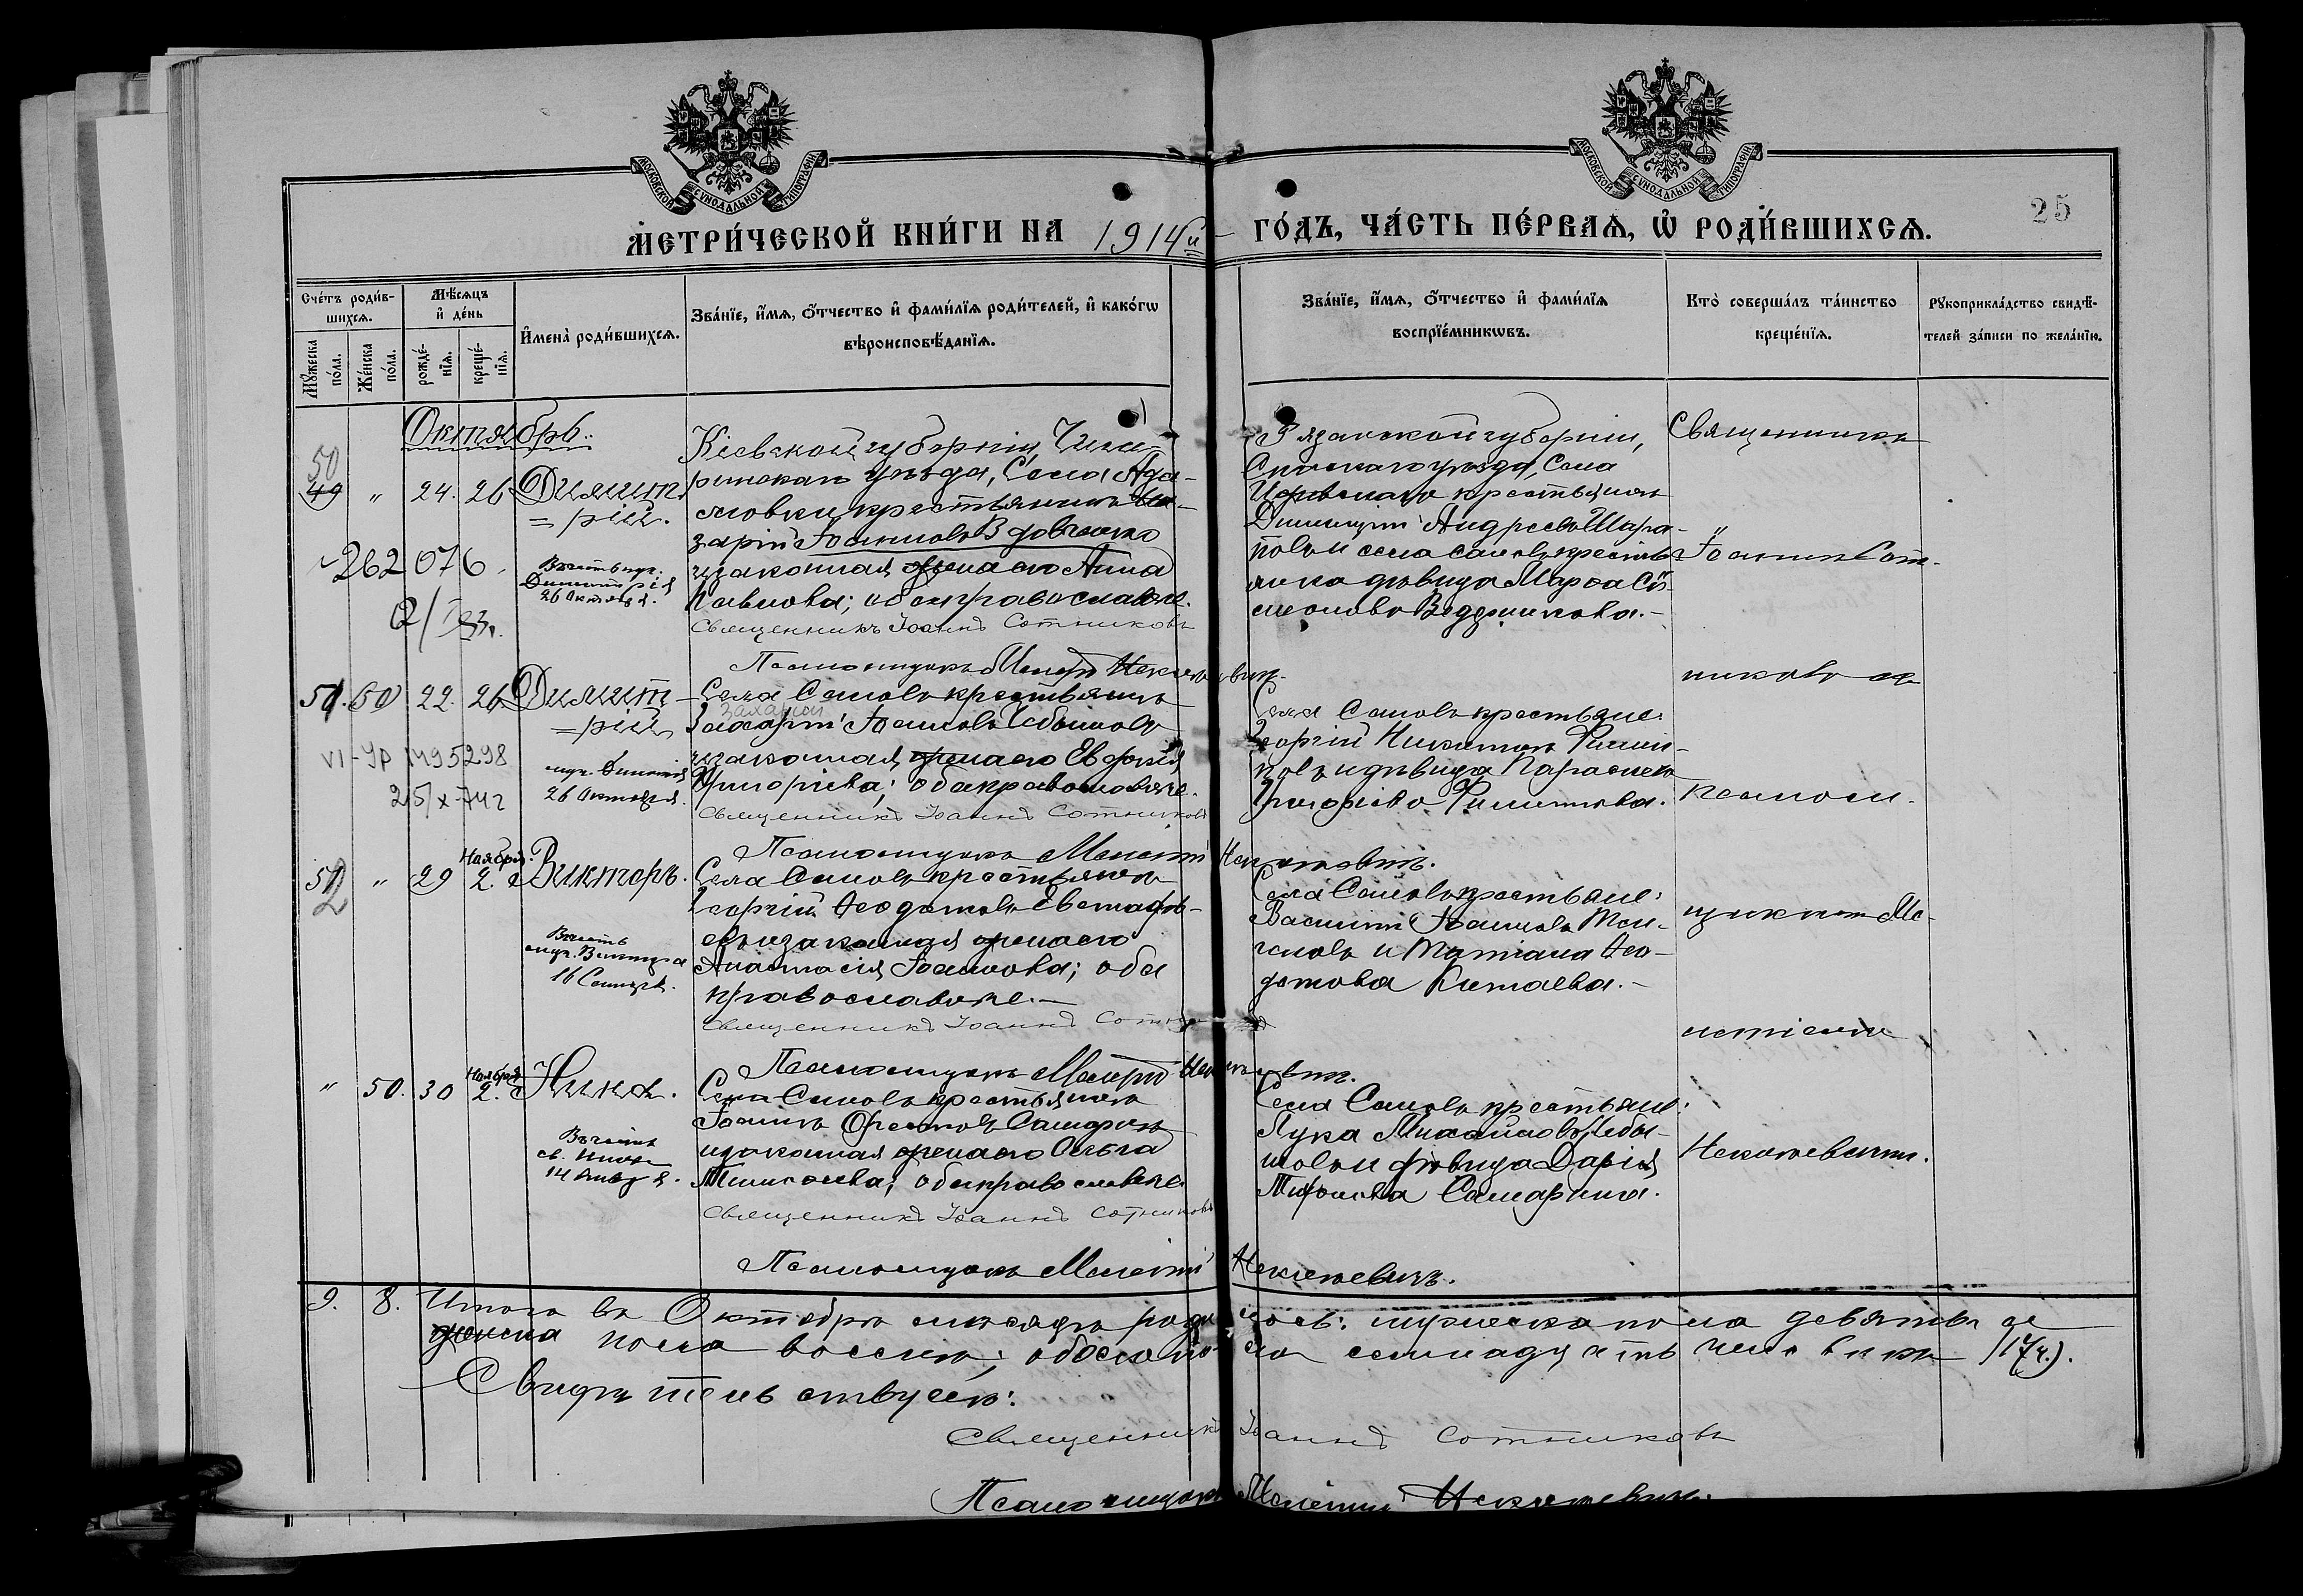 МОСКОВСКОЙ СѴНОДАЛЬНОЙ ТИПОГРАФІИ
МОСКОВСКОЙ СѴНОДАЛЬНОЙ ТИПОГРАФІИ
25
МЕТРИ́ЧЕСКОЙ КНИ́ГИ НА 1914й ГО́ДЪ, ЧА́СТЬ ПЕ́РВАѦ, Ѡ҆ РОДИ́ВШИХСѦ.
Сче́тъ роди́в-
шихсѧ.
Мꙋ́жеска
по́ла.
Же́нска
по́ла.
Мѣ́сѧцъ
и҆ де́нь
рожде́-
нїѧ.
креще́-
нїѧ.
И҆мена̀ роди́вшихсѧ.
Зва́нїе, и҆́мѧ, ѻ҆́тчество и҆ фами́лїѧ роди́телей, и҆ како́гѡ
вѣроисповѣ́данїѧ.
Зва́нїе, и҆́мѧ, ѻ҆́тчество и҆ фами́лїѧ
воспрїе́мникѡвъ.
Кто̀ соверша́лъ та́инство
креще́нїѧ.
Рꙋкоприкла́дство свидѣ́-
телей за́писи по жела́нїю.
Октябрь.
50
49 " 24. 26 Димит-
=рій.
Въ честь муч.
Димитрія
26 Октября.
262076
Кіевской губерніи, Чиги-
ринскаго уѣзда, Села Ада-
мовки, крестьянинъ На-
зарій Іоанновъ Вдовченко
и законная жена его Анна
Павлова; оба православные.
Священникъ Іоаннъ Сотниковъ
Псаломщикъ Мелетій Некичевичъ.
Рязанской губерніи,
Спасскаго уѣзда, Села
крестьянинъ
Димитрій Андреевъ Шара-
повъ и села Саловъ крестья-
янка дѣвица Марѳа Си-
меонова Ведерникова.
Священникъ
Іоаннъ Сот-
никовъ съ
псалом-
щикомъ Ме-
летіемъ
Некичевичемъ.
51. 50 22. 26 Димит-
=рій
муч. Димитрія
26 Октября.
VI-УР №495298
25/X-74г
Села Саловъ крестьянинъ
Захарій
Захарій Іоанновъ Чебышовъ
и законная жена его Евфимія
Григоріева; оба православные.
Священникъ Іоаннъ Сотниковъ
Псаломщикъ Мелетій Некичевичъ.
Села Саловъ крестьяне:
Георгій Никитинъ Филип-
повъ и дѣвица Параскева
Григоріева Филиппова.
Ноября:
52 " 29 2. Викторъ.
Въ честь
муч. Виктора
16 Сентяб.
Села Саловъ крестьянинъ
Георгій Ѳеодотовъ Евстафь-
евъ и законная жена его
Анастасія Іоаннова; оба
православные.
Священникъ Іоаннъ Сотниковъ
Псаломщикъ Мелетій Некичевичъ.
Села Саловъ крестьяне:
Василій Іоанновъ
и Татіана Ѳео-
дотова Китаева.
Ноября
" 50. 30 2. Нина.
Въ честь
св. Нины
14 Января.
Села Саловъ крестьянинъ
Іоаннъ Орестовъ Самаринъ
и законная жена его Ольга
Тимоѳеева; оба православные.
Священникъ Іоаннъ Сотниковъ
Псаломщикъ Мелетій Некичевичъ.
Села Саловъ крестьяне:
Лука Михайловъ Чебы-
шовъ и дѣвица Дарія
Самарина.
9. 8. Итого въ Октябрѣ мѣсяцѣ родилось: мужеска пола девять, а
женска пола восемь; обоего пола семнадцать человѣкъ (17ч.).
Свидѣтельствуемъ:
Священникъ Іоаннъ Сотниковъ
Псаломщикъ Мелетій Некичевичъ.